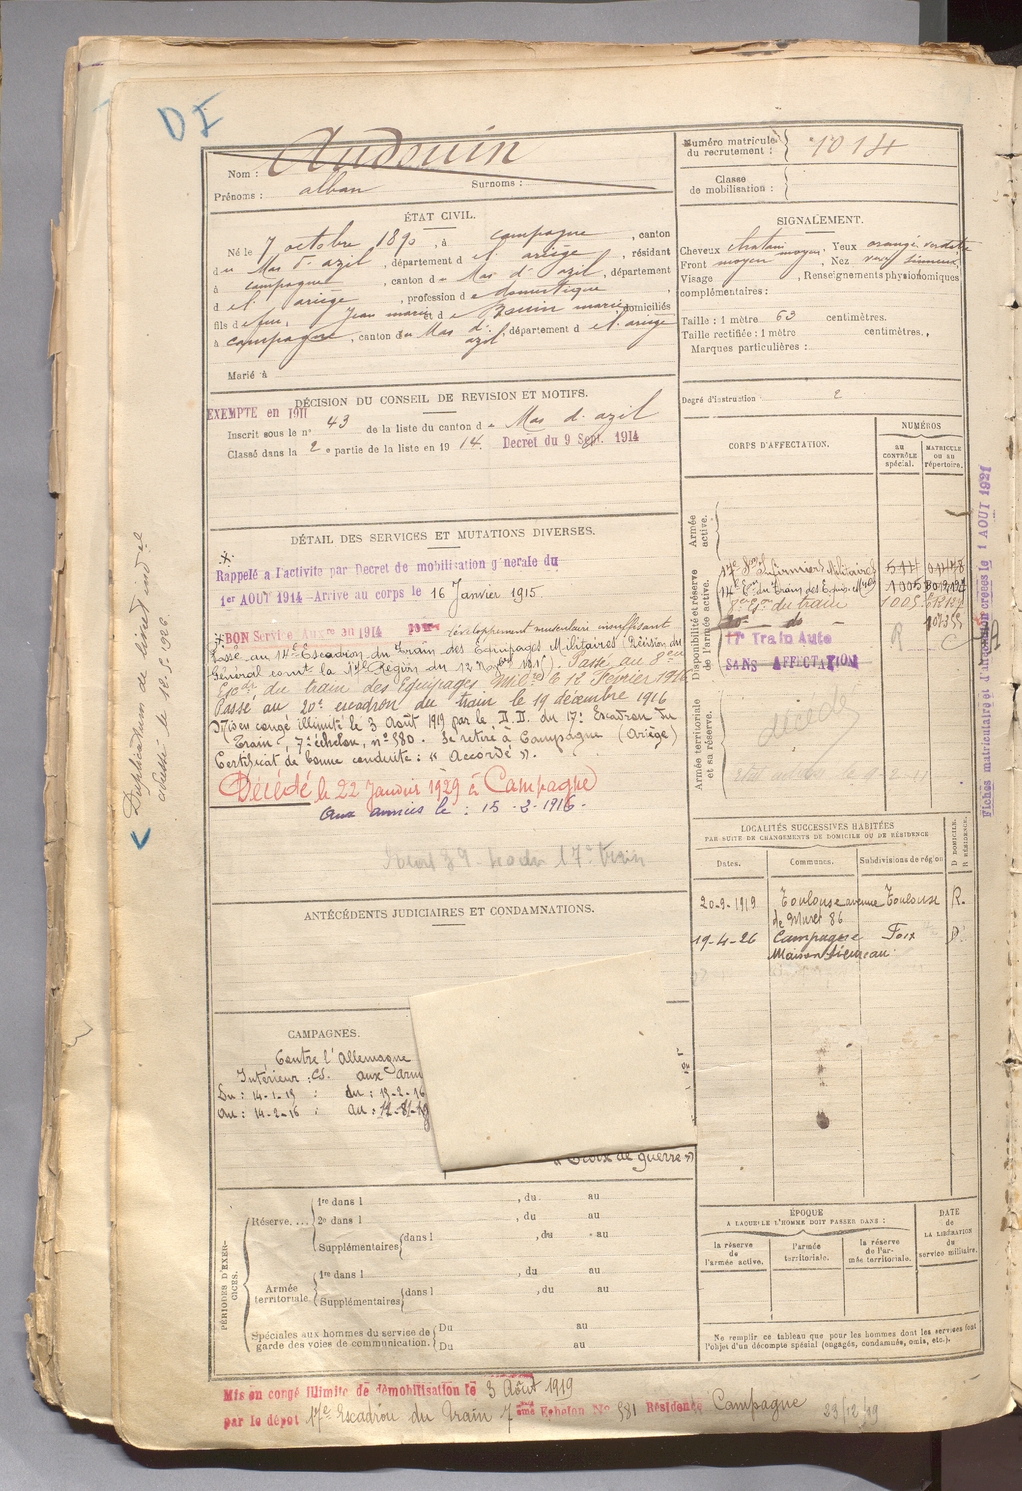 DI
Nom : Audouin
Prénoms : alban Surnoms :
Numéro matricule du recrutement : 1014
Classe de mobilisation :
ÉTAT CIVIL.
Né le 7 octobre 1890, à campagne, canton
du Mas d'azil, département d el ariège, résidant
à campagne, canton d u Mas d'azil, département
d el ariège, profession d e domestique
fils de feu Jean marie et d e marie domiciliés
à campagne, canton du Mas d'azil, département d el ariège
Marié à
SIGNALEMENT.
Cheveux chatain moyen, Yeux orangé verdatre
Front moyen, Nez sinueux
Visage , Renseignements physionomiques
complémentaires :
Taille : 1 mètre 63 centimètres.
Taille rectifiée : 1 mètre centimètres.
Marques particulières :
Degré d'instruction 2
DÉCISION DU CONSEIL DE REVISION ET MOTIFS.
EXEMPTE en 1911
Inscrit sous le n° 43 de la liste du canton d e Mas d'azil
Classé dans la 2 e partie de la liste en 19 14. Decret du 9 Sept. 1914
CORPS D'AFFECTATION.
NUMÉROS
au CONTRÔLE spécial.
MATRICULE ou au répertoire.
Armée active.
Disponibilité et réserve de l'armée active.
17e Son Infirmiers Militaires
14e Eon du Train des Equip. Mres 1005
8e Eon du train 1005
20e do
17e Train Auto
SANS AFFECTATION
R
Armée territoriale et sa réserve.
décédé
DÉTAIL DES SERVICES ET MUTATIONS DIVERSES.
Rappelé a l'activite par Decret de mobilisation générale du
1er AOUT 1914 - Arrive au corps le 16 Janvier 1915.
BON Service Auxre en 1914 pour développement musculaire insuffisant
Passé au 14e Escadron du Train des Equipages Militaires (Décision du
Général comt la 17e Région du 12 Novbre 1915). Passé au 8e
Escdr du train des Equipages Mres le 12 Février 1916
Passe au 20e escadron du train le 19 décembre 1916
Mis en congé illimité le 3 Août 1919 par le D.D. du 17e Escadron du
Train, 7e échelon, n° 580. Se retire à Campagne (Ariège)
Certificat de bonne conduite : « Accordé ».
Décédé le 22 Janvier 1929 à Campagne
aux armées le : 15-2-1916.
17e Train
Duplicatum de livret indel
adressé le 18.5.1926.
Fiches matriculaire et d'indon créées le 1 AOUT 1921
LOCALITÉS SUCCESSIVES HABITÉES
PAR SUITE DE CHANGEMENTS DE DOMICILE OU DE RÉSIDENCE
Dates. Communes. Subdivisions de région
D DOMICILE. R RÉSIDENCE.
20-9-1919 Toulouse avenue Toulouse R.
de Muret 86
19-4-26 Campagne Foix D.
Maison
ANTÉCÉDENTS JUDICIAIRES ET CONDAMNATIONS.
CAMPAGNES.
Contre l'Allemagne
Intérieur : CS. aux Arm
Du : 14-1-15 du : 15-2-16
Au : 14-2-16 au : 12-8-19
« Croix de guerre »
PÉRIODES D'EXERCICES.
Réserve.... 1re dans l , du au
2e dans l , du au
Supplémentaires dans l , du au
Armée territoriale 1re dans l , du au
Supplémentaires dans l , du au
Spéciales aux hommes du service de garde des voies de communication. Du au
Du au
ÉPOQUE
A LAQUELLE L'HOMME DOIT PASSER DANS :
la réserve de l'armée active.
l'armée territoriale.
la réserve de l'armée territoriale.
DATE de LA LIBÉRATION du service militaire.
Ne remplir ce tableau que pour les hommes dont les services font
l'objet d'un décompte spécial (engagés, condamnés, omis, etc.).
Mis en congé illimité de démobilisation le 3 Août 1919
par le dépôt 17e Escadron du Train 7ème Echelon No 581 Résidence Campagne 23/12/19